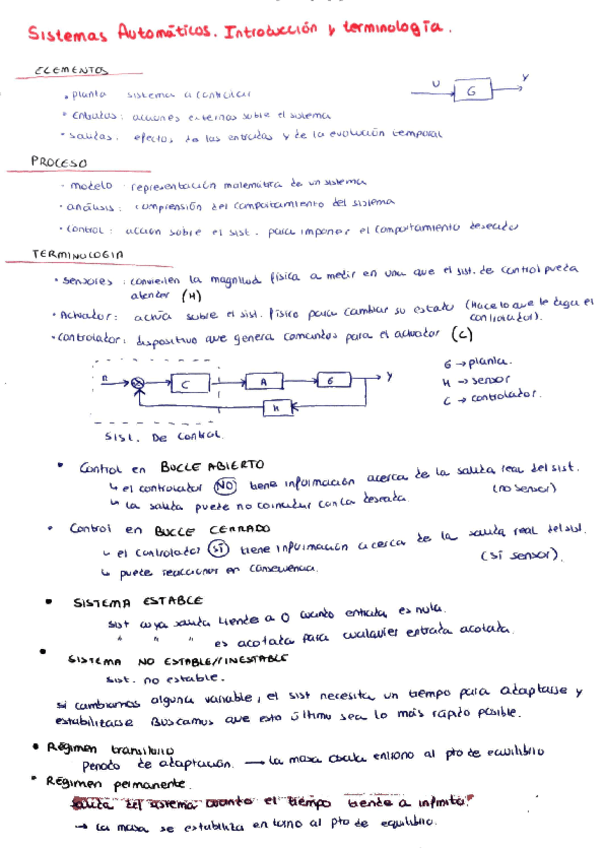 Sistemas Automáticos. Introducción y terminología.
ELEMENTOS
• planta sistema a controlar
• entradas: acciones externas sobre el sistema
• salidas: efectos de las entradas y de la evolución temporal
U G Y
PROCESO
• modelo representación matemática de un sistema
• análisis: comprensión del comportamiento del sistema
• control: acción sobre el sist. para imponer el comportamiento deseado
TERMINOLOGIA
• sensores: convierten la magnitud física a medir en una que el sist. de control pueda
atender (H)
• Actuador: actúa sobre el sist. físico para cambiar su estado (Hace lo que le diga el
controlador).
• controlador: dispositivo que genera comandos para el actuador (C)
R C A G Y
H
G → planta.
H → sensor
C → controlador.
Sist. De Control.
• Control en BUCLE ABIERTO
↳ el controlador NO tiene información acerca de la salida real del sist.
(no sensor)
↳ la salida puede no coincidir con la deseada.
• Control en BUCLE CERRADO
↳ el controlador SÍ tiene información acerca de la salida real del sist.
(sí sensor).
↳ puede reaccionar en consecuencia.
• SISTEMA ESTABLE
sist cuya salida tiende a 0 cuando entrada es nula.
" " " es acotada para cualquier entrada acotada.
• SISTEMA NO ESTABLE//INESTABLE
sist. no estable.
si cambiamos alguna variable, el sist necesita un tiempo para adaptarse y
estabilizarse Buscamos que esto último sea lo más rápido posible.
• Régimen transitorio
Periodo de adaptación. → la masa oscila entorno al pto de equilibrio
• Régimen permanente.
salida del sistema cuando el tiempo tiende a infinito.
→ la masa se estabiliza en torno al pto de equilibrio.